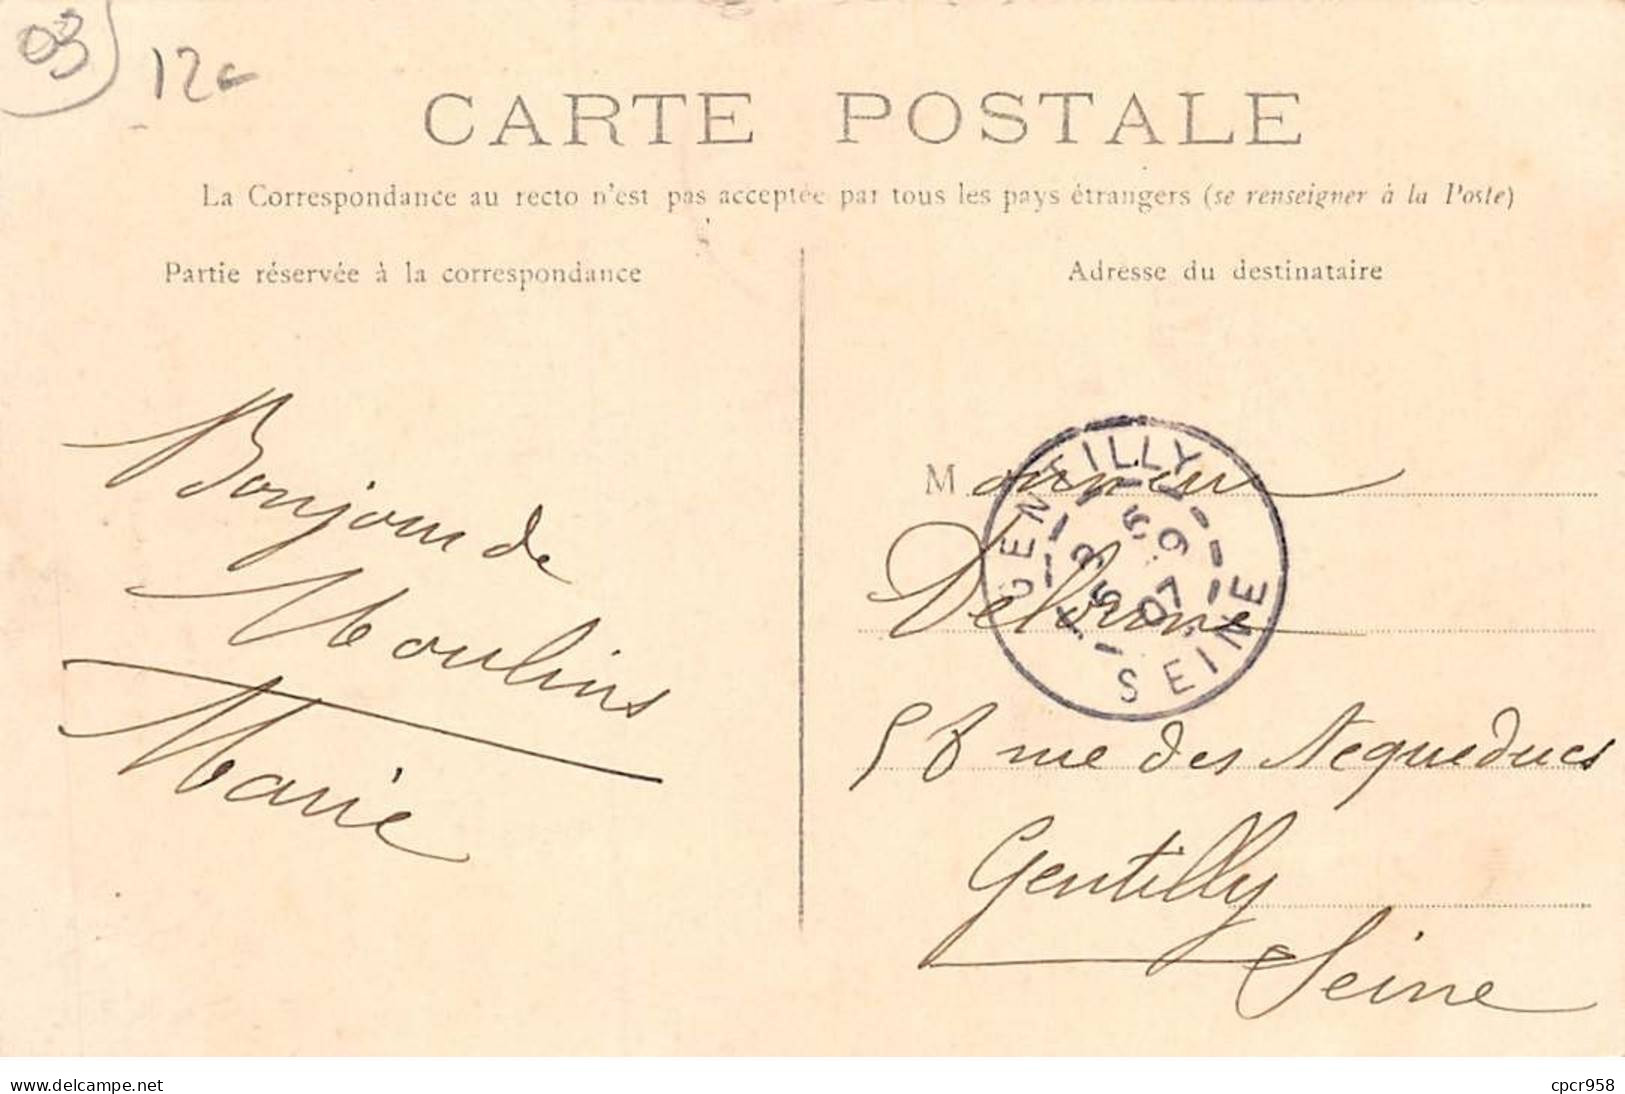 03
12c
CARTE POSTALE
La Correspondance au recto n'est pas acceptée par tous les pays étrangers (se renseigner à la Poste)
Partie réservée à la correspondance
Adresse du destinataire
Bonjour de
Moulins
Marie
Monsieur
Delorme
58 rue des Aequeducs
Gentilly
Seine
GENTILLY
5 9
07
SEINE
www.delcampe.net
cpcr958